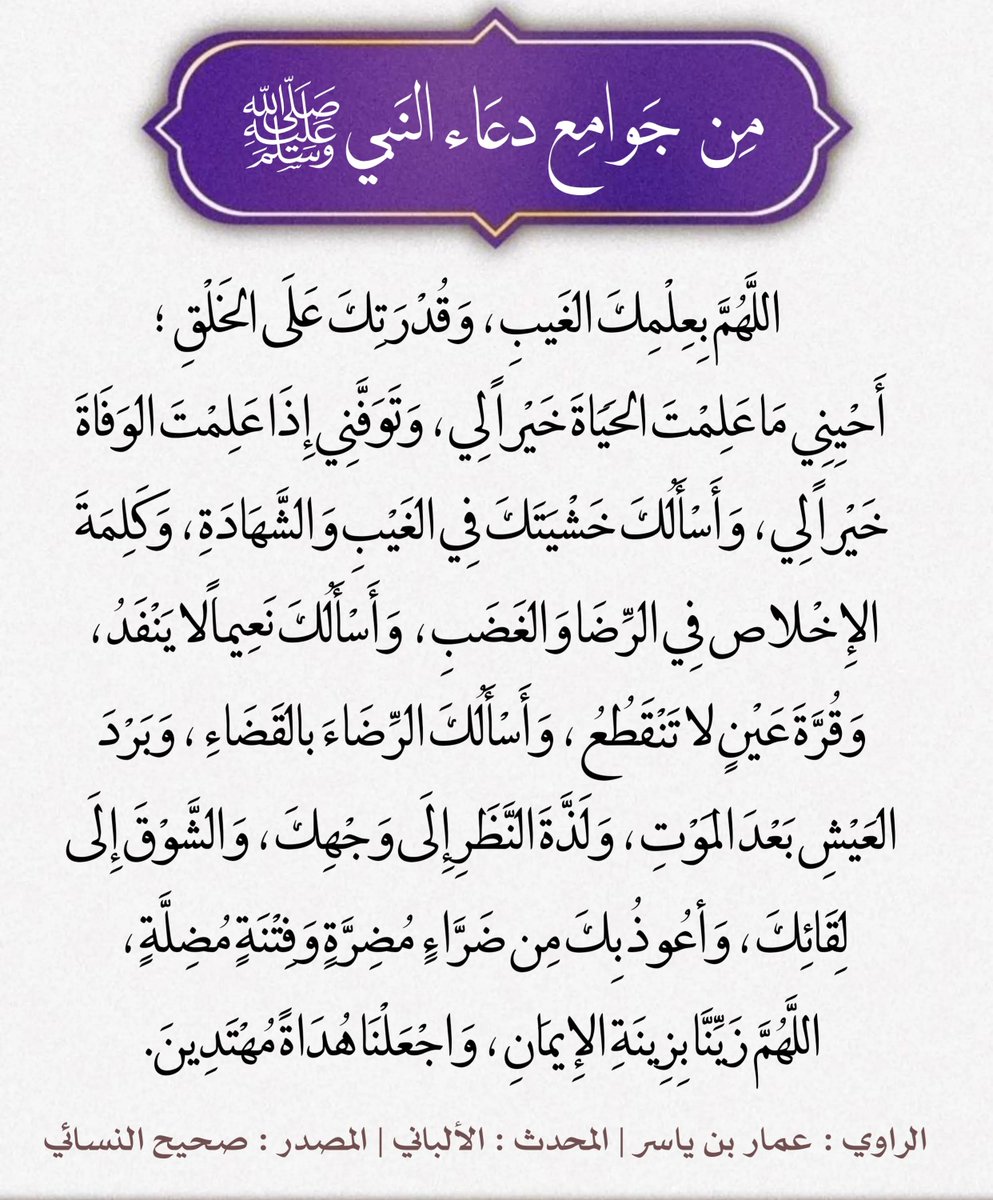 مِن جَوامِع دعَاء النَبي ﷺ
اللَّهُمَّ بِعِلْمِكَ الغَيبِ، وَقُدْرَتِكَ عَلَى الخَلْقِ ؛
أَحْيِنِي مَا عَلِمْتَ الحَيَاةَ خَيْراً لِي، وَتَوَفَّنِي إِذَا عَلِمْتَ الوَفَاةَ
خَيْراً لِي، وَأَسْأَلُكَ خَشْيَتَكَ فِي الغَيْبِ وَالشَّهَادَةِ، وَكَلِمَةَ
الإِخْلاص فِي الرِّضَا وَالغَضَبِ، وَأَسْأَلُكَ نَعِيماً لا يَنْفَدُ،
وَقُرَّةَ عَيْنٍ لا تَنْقَطُعُ، وَأَسْأَلُكَ الرِّضَاءَ بالقَضَاءِ، وَبَرْدَ
العَيْشِ بَعْدَ المَوْتِ، وَلَذَّةَ النَّظَرِ إِلَى وَجْهِكَ، وَالشَّوْقَ إِلَى
لِقَائِكَ، وَأعُوذُ بِكَ مِن ضَرَّاءٍ مُضِرَّةٍ وَفِتْنَةٍ مُضِلَّةٍ،
اللَّهُمَّ زَيِّنَّا بِزِينَةِ الإِيمَانِ، وَاجْعَلْنَا هُدَاةً مُهْتَدِينَ.
الراوي : عمار بن ياسر | المحدث : الألباني | المصدر : صحيح النسائي